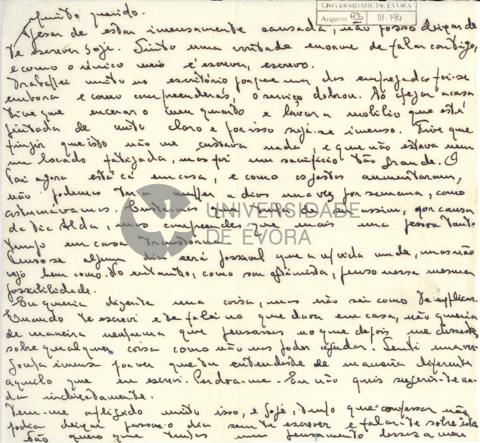 UNIVERSIDADE DE ÉVORA
Arquivo PCS 01.194
Muito querido.
Apesar de estar imensamente cansada, não posso deixar de
te escrever hoje. Sinto uma vontade enorme de falar contigo,
e como o único meio é escrever, escrevo.
Trabalhei muito no escritório porque um dos empregados foi-se
embora e como compreenderás, o serviço dobrou. Ao chegar a casa
tive que encerar o meu quarto e lavar a mobília que está
pintada de muito claro e por isso suja-se imenso. Tive que
fingir que isto não me custava nada, e que não estava nem
um bocado fatigada, mas foi um sacrifício tão grande. O
Pai agora está cá em casa, e como os gastos aumentaram,
não podemos ter a mulher a dias uma vez por semana, como
costumávamos. que tem de ser assim, por causa
da tia Alda, mas compreendes que mais uma pessoa tanto
tempo em casa transtorna.
Penso se algum dia será possível que a vida mude, mas não
vejo bem como. No entanto, como sou optimista, penso nessa mesma
possibilidade.
Eu queria dizer-te uma coisa, mas não sei como te explicar.
Quando te escrevi e te falei no que dava em casa, não queria
de maneira nenhuma que pensasses no que depois me disseste
sobre qualquer coisa como não me poder ajudar. Senti uma ver-
gonha imensa por ver que tu entendeste de maneira diferente
aquilo que eu escrevi. Perdoa-me. Eu não quis sugerir-te na-
da indirectamente.
Tem-me afligido muito isso, e hoje, tenho que confessar não
podia deixar passar o dia sem te escrever e falar-te sobre isto
Não quero que tenhas um pensamento desses, nem
UNIVERSIDADE
DE ÉVORA